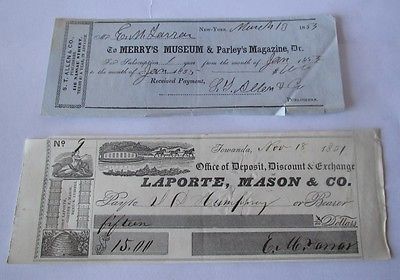 S. T. ALLEN & CO.
New-York, March 18 1853
E. M. Farrar
To MERRY'S MUSEUM & Parley's Magazine, Dr.
For Subscription 1 year from the month of Jan 1853
to the month of Jan
Received Payment,
S. T. Allen & Co
PUBLISHERS.
No 2
Towanda, Nov 18 1851
Office of Deposit, Discount & Exchange
LAPORTE, MASON & CO.
Pay to Humphrey or Bearer
fifteen Dollars
$15.00 E. M. Farrar